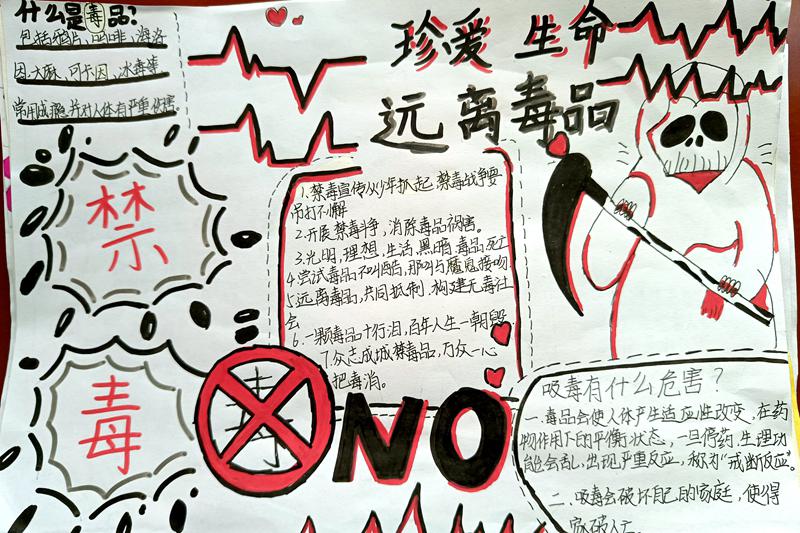 什么是毒品?
包括鸦片、吗啡、海洛
因、大麻、可卡因、冰毒等
常用成瘾,并对人体有严重伤害
珍爱 生命
远离毒品
禁
毒
1.禁毒宣传从少年抓起 禁毒战争要
吊打不懈
2.开展禁毒斗争,消除毒品祸害。
3.光明,理想,生活,黑暗,毒品,死亡
4.尝试毒品不叫酷,那叫与魔鬼接吻
5.远离毒品,共同抵制,构建无毒社
会
6.一颗毒品十行泪,百年人生一朝毁
7.众志成城禁毒品,万众一心
把毒消。
毒
NO
吸毒有什么危害?
一.毒品会使人体产生适应性改变,在药
物作用下的平衡状态,一旦停药,生理功
能会乱,出现严重反应,称为“戒断反应”。
二、吸毒会破坏自己的家庭,使得
家破人亡。